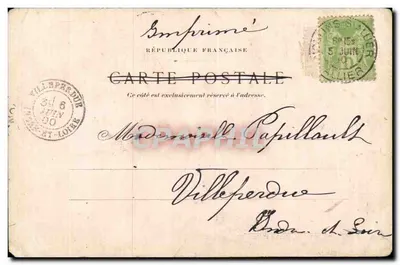 Imprimé
RÉPUBLIQUE FRANÇAISE
CARTE POSTALE
Ce côté est exclusivement réservé à l'adresse.
5 JUIN
VILLEPERDUE
9
JUIN
00
INDRE-ET-LOIRE
Mademoiselle Papillault
Villeperdue
Indre et Loire